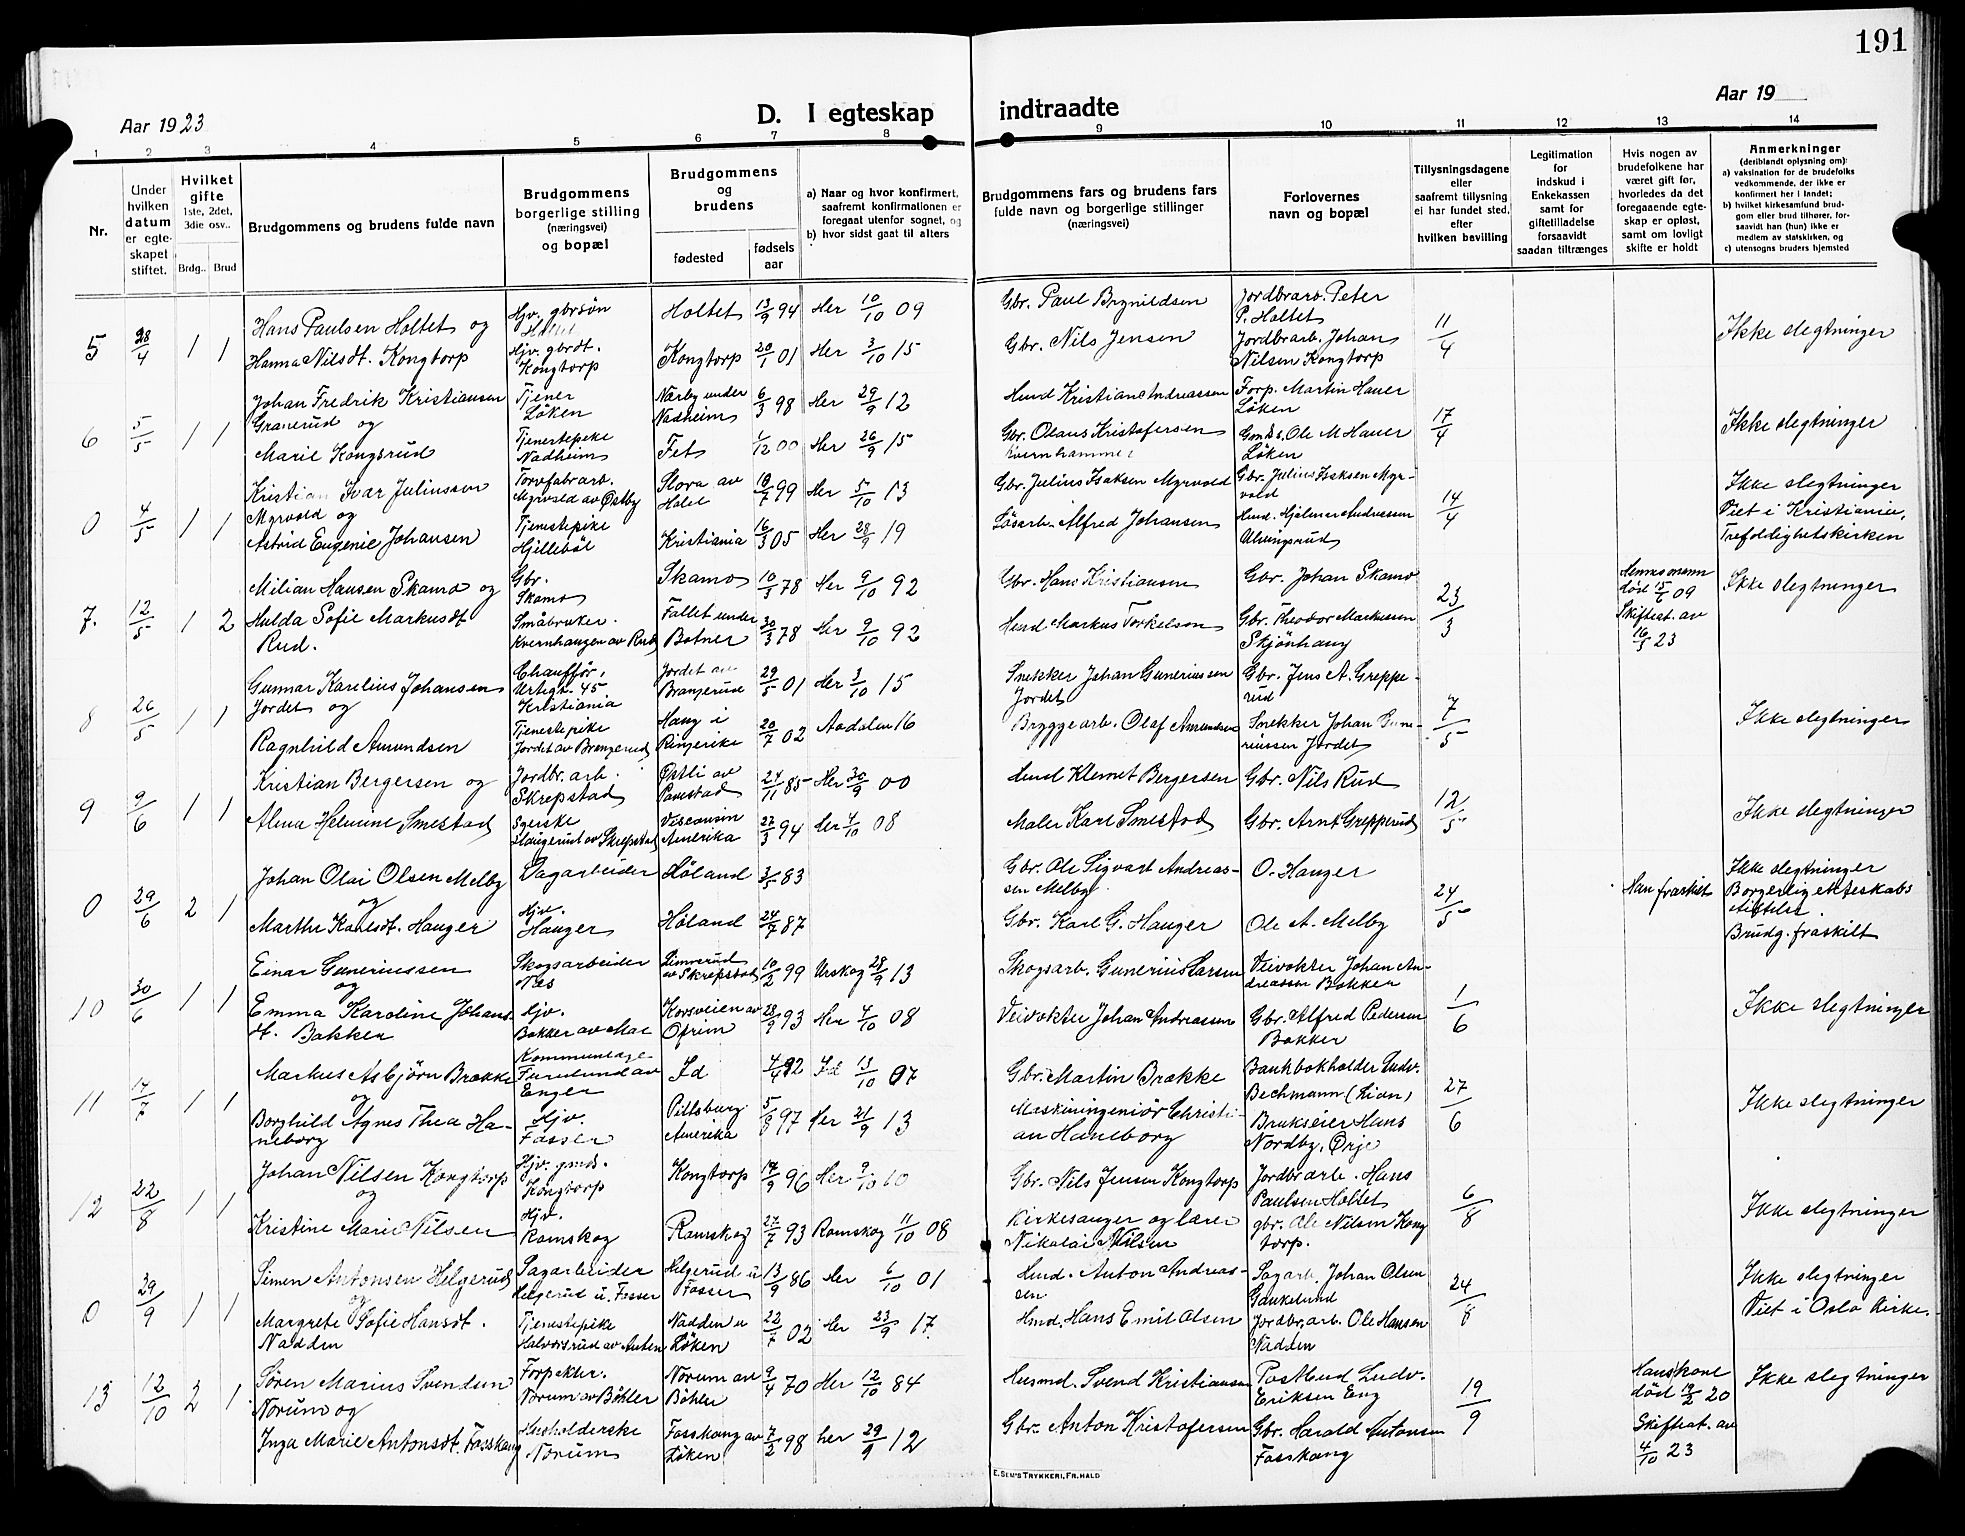 191
Aar 1923
D. I egteskap
indtraadte
Aar 19
1 2 3 4 5 6 7 8 9 10 11 12 13 14
Nr.
Under
hvilken
datum
er egte-
skapet
stiftet.
Hvilket
gifte
1ste, 2det,
3die osv..
Brdg.. Brud
Brudgommens og brudens fulde navn
Brudgommens
borgerlige stilling
(næringsvei)
og bopæl
Brudgommens
og
brudens
fødested
fødsels
aar
a) Naar og hvor konfirmert,
saafremt konfirmationen er
foregaat utenfor sognet, og
b) hvor sidst gaat til alters
Brudgommens fars og brudens fars
fulde navn og borgerlige stillinger
(næringsvei)
Forlovernes
navn og bopæl
Tillysningsdagene
eller
saafremt tillysning
ei har fundet sted,
efter
hvilken bevilling
Legitimation
for
indskud i
Enkekassen
samt for
giftetilladelse
forsaavidt
saadan tiltrænges
Hvis nogen av
brudefolkene har
været gift før,
hvorledes da det
foregaaende egte-
skap er opløst,
samt om lovligt
skifte er holdt
Anmerkninger
(deriblandt oplysning om):
a) vaksination for de brudefolks
vedkommende, der ikke er
konfirmert her i landet;
b) hvilket kirkesamfund brud-
gom eller brud tilhører, for-
saavidt han (hun) ikke er
medlem av statskirken, og
c) utensogns bruders hjemsted
5 28/4 1 1
Hans Paulsen Holtet og
Hanna Nilsdt. Kongtorp
Hjv. gbrsøn
Holtet
Hjv. gbrdt.
Kongtorp
Holtet 13/9 94 Her 10/10 09
Kongtorp 20/1 01 Her 3/10 15
Gbr. Paul Brynildsen
Gbr. Nils Jensen
Jordbrarb. Peter
P. Holtet
Jordbrarb. Johan
Nilsen Kongtorp
11/4
Ikke slegtninger
6 5/5 1 1
Johan Fredrik Kristiansen
Granerud og
Marie Kongsrud
Tjener
Løken
Tjenestepike
Nadheim
Nærby under
Nadheim 6/3 98 Her 29/9 12
Fet 1/12 00 Her 26/9 15
Hmd Kristian Andreassen
Gbr. Olaus Kristofersen
Kvernhammer
Forp. Martin Hauer
Løken
Gmds. Ole M Hauer
Løken
17/4
Ikke slegtninger
0 4/5 1 1
Kristian Ivar Juliussen
Myrvold og
Astrid Eugenie Johansen
Torvfabrarb.
Myrvold av Østby
Tjenestepike
Hjillebøl
Flora av
18/7 99 Her 5/10 13
Kristiania 16/3 05 Her 28/9 19
Gbr. Julius Isaksen Myrvold
Løsarb. Alfred Johansen
Gbr. Julius Isaksen Myr-
vold
Hmd. Hjalmar Andreassen
14/4
Ikke slegtninger
Viet i Kristiania,
Trefoldighetskirken
7. 12/5 1 2
Milian Hansen Skamo og
Hulda Sofie Markusdt
Rud.
Gbr.
Skamo
Småbruker.
Kvernhaugen av Rud
Skamo 10/3 78 Her 9/10 92
Fallet under
Botner 30/3 78 Her 9/10 92
Gbr. Hans Kristiansen
Hmd. Markus Torkelsen
Gbr. Johan Skamo
Gbr. Theodor Markussen
Skjønhaug
23/3
Hennes mann
død 15/6 09
Skifteat. av
16/3 23
Ikke slegtninger
8 26/5 1 1
Gunnar Karelius Johansen
Jordet og
Ragnhild Amundsen
Chauffør,
Vertsgt. 45.
Kristiania
Tjenestepike
Jordet av Brangerud
Jordet av
Brangerud 29/5 01 Her 3/10 15
Haug i
Ringerike 20/7 02 Aadalen 16
Snekker Johan Guneriussen
Jordet
Bryggearb. Olaf Amundsen
Gbr. Jens A. Greppe-
rud
Snekker Johan Gune-
riussen Jordet
7/5
Ikke slegtninger
9 9/6 1 1
Kristian Bergersen og
Alma Helmine Smestad
Jordbr. arb.
Skrepstad
Syerske
Haugerud av Skrepstad
Østli av
Pavestad 24/11 85 Her 30/9 00
Visconsin
Amerika 27/3 94 Her 4/10 08
Hmd Klemet Bergersen
Maler Karl Smestad
Gbr. Nils Rud
Gbr. Arnt Grepperud
12/5
Ikke slegtninger
0 29/6 2 1
Johan Olai Olsen Melby
og
Marthe Karlsdt. Hauger
Sagarbeider
Hjv.
Hauger
Høland 3/5 83
Høland 24/7 87
Gbr. Ole Sigvart Andreas-
sen Melby
Gbr. Karl G. Hauger
O. Hauger
Ole A. Melby
24/5
Han fraskilt
Ikke slegtninger
Borgerlig ekteskabs
stiftelse.
Brudg. fraskilt
10 30/6 1 1
Einar Guneriussen
og
Emma Karoline Johans-
dt. Bakken
Skogsarbeider
Næs
Hjv.
Bakker av Mae
av Skrepstad 10/2 99 Urskog 28/9 13
Korsveien av
Ofrim 28/9 93 Her 4/10 08
Skogsarb. Gunerius Larsen
Veivokter Johan Andreassen
Veivokter Johan An-
dreassen Bakker
Gbr. Alfred Pedersen
Bakker
1/6
Ikke slegtninger
11 17/7 1 1
Markus Asbjørn Brække
og
Borghild Agnes Thea Ha-
neborg
Kommunelæge
Furulund av
Enger
Hjv.
Fosser
Id 4/4 92 Id 13/10 07
Pittsburg
Amerika 5/8 97 Her 21/9 13
Gbr. Martin Brække
Maskiningeniør Christi-
an Haneborg
Bankbokholder Ludv.
Bechmann (Lian)
Brukseier Hans
Nordby, Ørje
27/6
Ikke slegtninger
12 22/8 1 1
Johan Nilsen Kongtorp
og
Kristine Marie Nilsen
Hjv. gmds.
Kongtorp
Hjv.
Rømskog
Kongtorp 17/9 96 Her 9/10 10
Rømskog 27/7 93 Rømskog 11/10 08
Gbr. Nils Jensen Kongtorp
Kirkesanger og lærer
Nikolai Nilsen
Jordbrarb. Hans
Paulsen Holtet
gbr. Ole Nilsen Kong
torp.
6/8
Ikke slegtninger
0 29/9 1 1
Simen Antonsen Helgerud
og
Margrete Sofie Hansdt.
Nadden
Sagarbeider
Helgerud u. Fosser
Tjenestepike
Halvorsrud av Anten
Helgerud u
Fosser 13/9 86 Her 6/10 01
Nadden u
Løken 22/7 02 Her 23/9 17.
Hmd. Anton Andreas-
sen
Hmd. Hans Emil Olsen
Sagarb. Johan Olsen
Gaukelund
Jordbr.arb. Ole Hansen
Nadden
24/8
Ikke slegtninger
Viet i Oslo Kirke.
13 12/10 2 1
Søren Marius Svendsen
Norum og
Inga Marie Antonsdt. Fosshaug
Forpekter.
Norum av Bøhler
Husholderske
Norum
Norum av
Bøhler 9/4 70 Her 12/10 84
Fosshaug av
Løken 7/2 98 her 29/9 12
Husmd. Svend Kristiansen
Gbr. Anton Kristofersen
Postbud Ludv.
Eriksen Eng
Gbr. Harald Antonsen
Fosshaug
19/9
Hans kone
død 12/2 20
Skifteat. av
4/10 23
Ikke slegtninger
E. SEM'S TRYKKERI, FR.HALD